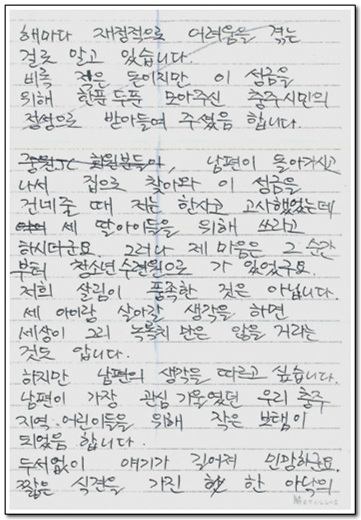 해마다 재정적으로 어려움을 겪는
걸로 알고 있습니다.
비록 적은 돈이지만 이 성금을
위해 한푼두푼 모아주신 충주시민의
정성으로 받아들여 주셨음 합니다.
중원JC 회원분들이, 남편이 돌아가시고
나서 집으로 찾아와 이 성금을
건네줄 때 저는 한사코 고사했었는데
세 딸아이들을 위해 쓰라고
하시더군요. 그러나 제 마음은 그 순간
부터 청소년수련원으로 가 있었구요.
저희 살림이 풍족한 것은 아닙니다.
세 아이랑 살아갈 생각을 하면
세상이 그리 녹록치 만은 않을 거라는
것도 압니다.
하지만 남편의 생각을 따르고 싶습니다.
남편이 가장 관심 기울였던 우리 충주
지역·어린이들을 위해 작은 보탬이
되었음 합니다.
두서없이 얘기가 길어져 민망하군요.
짧은 식견을 가진 한 아낙의